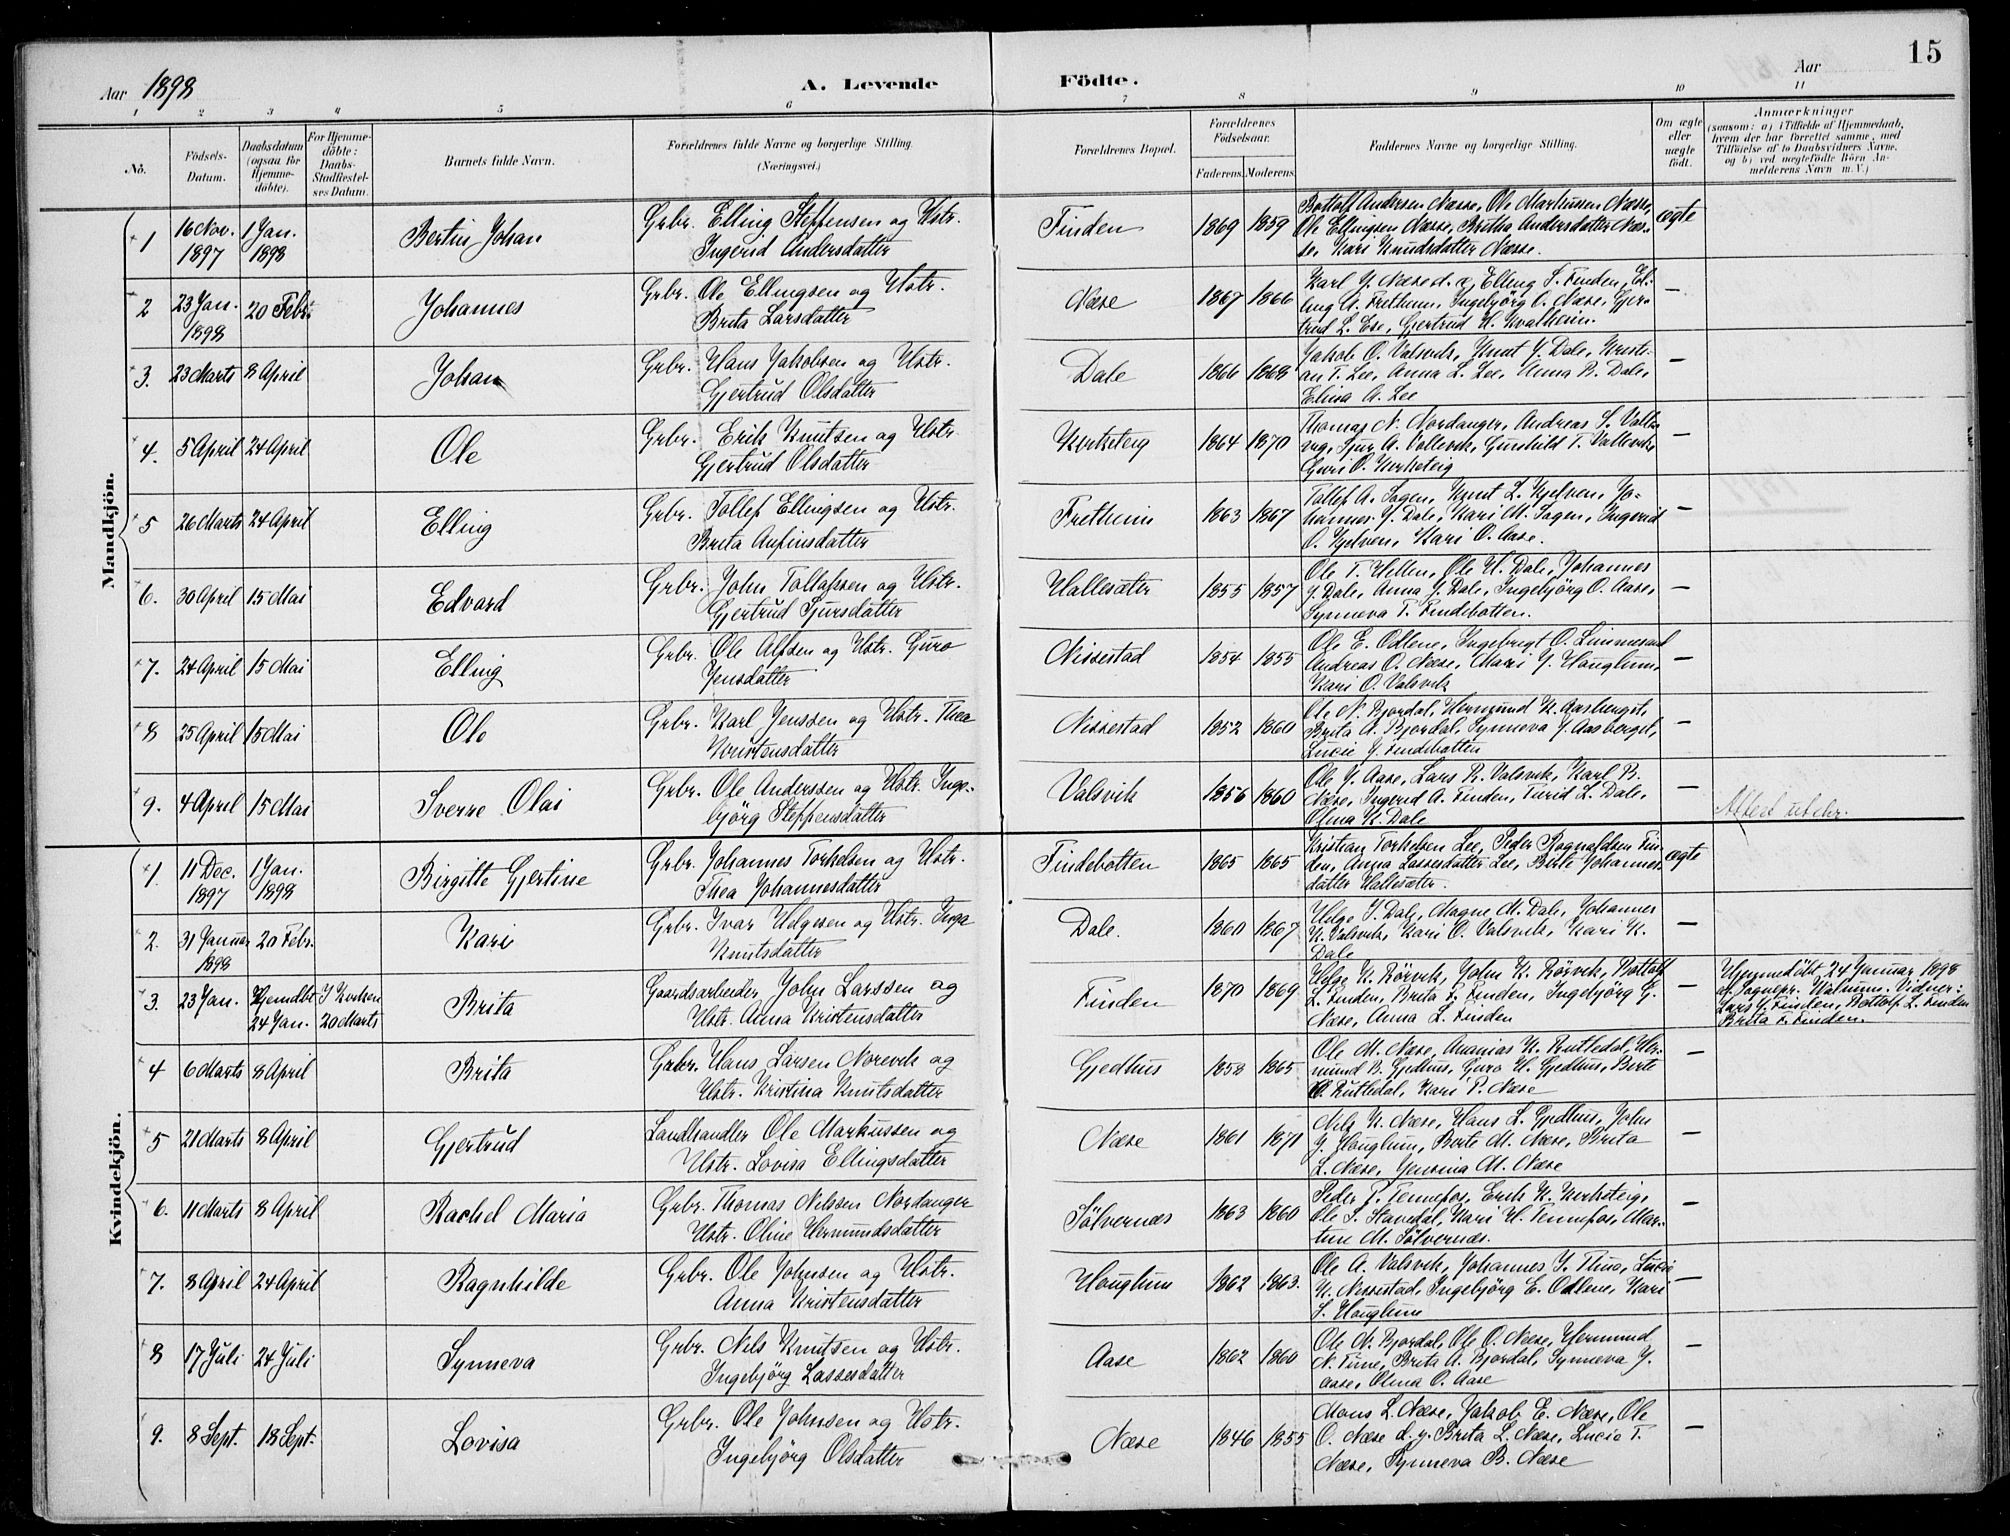 15
Aar 1898 A. Levende Födte. Aar
1 2 3 4 5 6 7 8 9 10 11
No. Födsels-Datum. Daabsdatum (ogsaa for Hjemme-döbte). For Hjemme-döbte: Daabs-Stadfæstel-ses Datum. Barnets fulde Navn. Forældrenes fulde Navne og borgerlige Stilling. (Næringsvei.) Forældrenes Bopæl. Forældrenes Födselsaar. Faderens. Moderens. Faddernes Navne og borgerlige Stilling. Om ægte eller uægte födt. Anmærkninger (saasom: a) i Tilfælde af Hjemmedaab, hvem der har forrettet samme, med Tilföielse af to Daabsvidners Navne, og b) ved uægtefödte Börn An-melderens Navn m. V.)
Mandkjön.
1 16 Nov. 1897 1 Jan. 1898 Bertin Johan Grbr. Elling Steffensen og Hstr. Ingerid Andersdatter Finden 1869 1859 Bottolf Andersen Næsse, Ole Markussen Næsse, Ole Ellingsen Næsse, Britha Andersdatter Næs-se, Kari Knudsdatter Næsse. ægte
2 23 Jan. 1898 20 Febr. Johannes Grbr. Ole Ellingsen og Hstr. Brita Larsdatter Næse 1867 1866 Karl J. Næse d. æ, Elling S. Finden, El-ling A. Fretheim, Ingebjörg O. Næse, Gjer-trud L. Ese, Gjertrud H. Kvalheim. —
3. 23 Marts 8 April Johan Grbr. Hans Jakobsen og Hstr. Gjertrud Olsdatter Dale 1866 1868 Jakob O. Valsvik, Knut J. Dale, Kristi-an T. Lee, Anna L. Lee, Anna B. Dale, Elisa A. Lee —
4. 5 April 24 April Ole Grbr. Erik Knutsen og Hstr. Gjertrud Olsdatter Kirketeig 1864 1870 Thomas N. Nordanger, Andreas S. Valle-vag, Sjur A. Vallevik, Gunhild T. Vallevik, Guri O. Kirketeig —
5 26 Marts 24 April Elling Grbr. Tollef Ellingsen og Hstr. Brita Anfinsdatter Fretheim 1863 1867 Tollef A. Sagen, Knut L. Kjelven, Jo-hannes J. Dale, Kari M. Sagen, Ingerid O. Kjelven, Kari O. Aase. —
6. 30 April 15 Mai Edvard Grbr. John Tollafsen og Hstr. Gjertrud Sjursdatter Hallesæter 1855 1857 Ole T. Hellen, Ole H. Dale, Johannes J. Dale, Anna J. Dale, Ingebjörg O. Aase, Synneva T. Findebotten. —
7. 24 April 15 Mai Elling Grbr. Ole Alfsen og Hstr. Guro Jensdatter Nissestad 1854 1855 Ole E. Odlene, Ingebrigt O. Limmesand Andreas O. Næse, Mari J. Hauglum, Kari O. Valsvik —
8 25 April 15 Mai Ole Grbr. Karl Jenssen og Hstr. Thea Kristensdatter Nissestad 1852 1860 Ole N. Bjordal, Hermund K. Aasberget, Brita A. Bjordal, Synneva J. Aasberget, Lucie J. Findebotten —
9. 4 April 15 Mai Sverre Olai Grbr. Ole Anderssen og Hstr. Inge-björg Steffensdatter Valsvik 1856 1860 Ole J. Aase, Lars R. Valsvik, Karl B. Næse, Ingerid A. Finden, Turid L. Dale, Olina K. Dale — Attest utskr.
Kvindekjön.
1. 11 Dec. 1897 1 Jan. 1898 Birgitte Gjertine Grbr. Johannes Torkelsen og Hstr. Thea Johannesdatter Findebotten 1865 1865 Kristian Torkelsen Lee, Peder Rognaldsen Fin-den, Anna Lassesdatter Lee, Birte Johannes-datter Hallesæter. ægte
2. 31 Januar 1898 20 Febr. Kari Grbr. Ivar Helgesen og Hstr. Inga Knutsdatter Dale. 1860 1867 Helge I. Dale, Magne M. Dale, Johannes K. Valsvik, Kari O. Valsvik, Kari K. Dale —
3. 23 Jan. Hjemdbt 24 Jan. I Kirken 20 Marts Brita Gaardsarbeider John Larssen og Hstr. Anna Kristensdatter Finden 1870 1869 Helge K. Rörvik, John K. Rörvik, Bottolf L. Finden, Brita F. Finden, Ingebjörg G. Næse, Anna L. Finden — Hjemmedöbt 24 Januar 1898 af Sognepr. Kalnum. Vidner: Lars J. Finden, Bottolf L. Finden Brita F. Finden.
4 6 Marts 8 April Brita Grbr. Hans Larsen Norevik og Hstr. Kristina Knutsdatter Gjedhus 1858 1865 Ole M. Næse, Ananias K. Rutledal, Her-mund B. Gjedhus, Guro H. Gjedhus, Berte O. Rutledal, Kari P. Næse —
5 21 Marts 8 April Gjertrud Landhandler Ole Markussen og Hstr. Lovisa Ellingsdatter Næse 1861 1871 Nils K. Næse, Hans L. Gjedhus, John J. Hauglum, Berte M. Næse, Brita L. Næse, Jensina M. Næse —
6. 11 Marts 8 April Rachel Maria Grbr. Thomas Nilssen Nordanger Hstr. Oline Hermundsdatter Sölvernæs 1863 1860 Peder T. Tennefos, Erik K. Kirketeig, Ole S. Stavedal, Kari H. Tennefos, Mar-tine M. Sölvernæs. —
7. 8 April 24 April Ragnhilde Grbr. Ole Johnsen og Hstr. Anna Kristensdatter Hauglum 1862 1863. Ole A. Valsvik, Johannes J. Thue, Lucie K. Nissestad, Ingebjörg E. Odlene, Kari S. Hauglum —
8 17 Juli 24 Juli Synneva Grbr. Nils Knutsen og Hstr. Ingebjörg Lassesdatter Aase 1862 1860 Ole N. Bjordal, Ole O. Næse, Hermund N. Tune, Brita A. Bjordal, Synneva J. Aase, Olina O. Aase —
9. 8 Sept. 18 Sept. Lovisa Grbr. Ole Johnsen og Hstr. Ingebjörg Olsdatter Næse 1846 1855 Mons L. Næse, Jakob E. Næse, Ole O. Næse d. y. Brita L. Næse, Lucie T. Næse, Synneva B. Næse —